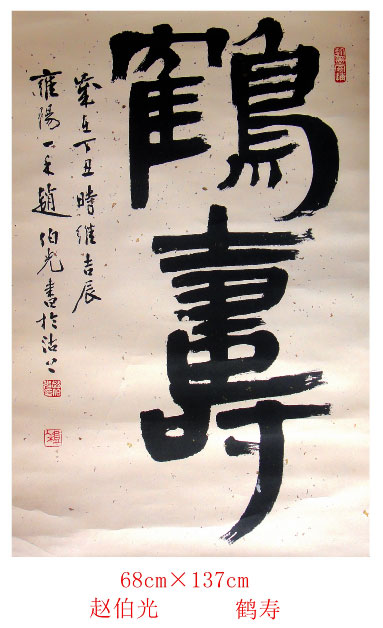 鶴壽
歲在丁丑時維吉辰
雍陽一 趙伯光書於沽上
68cm×137cm
赵伯光 鹤寿